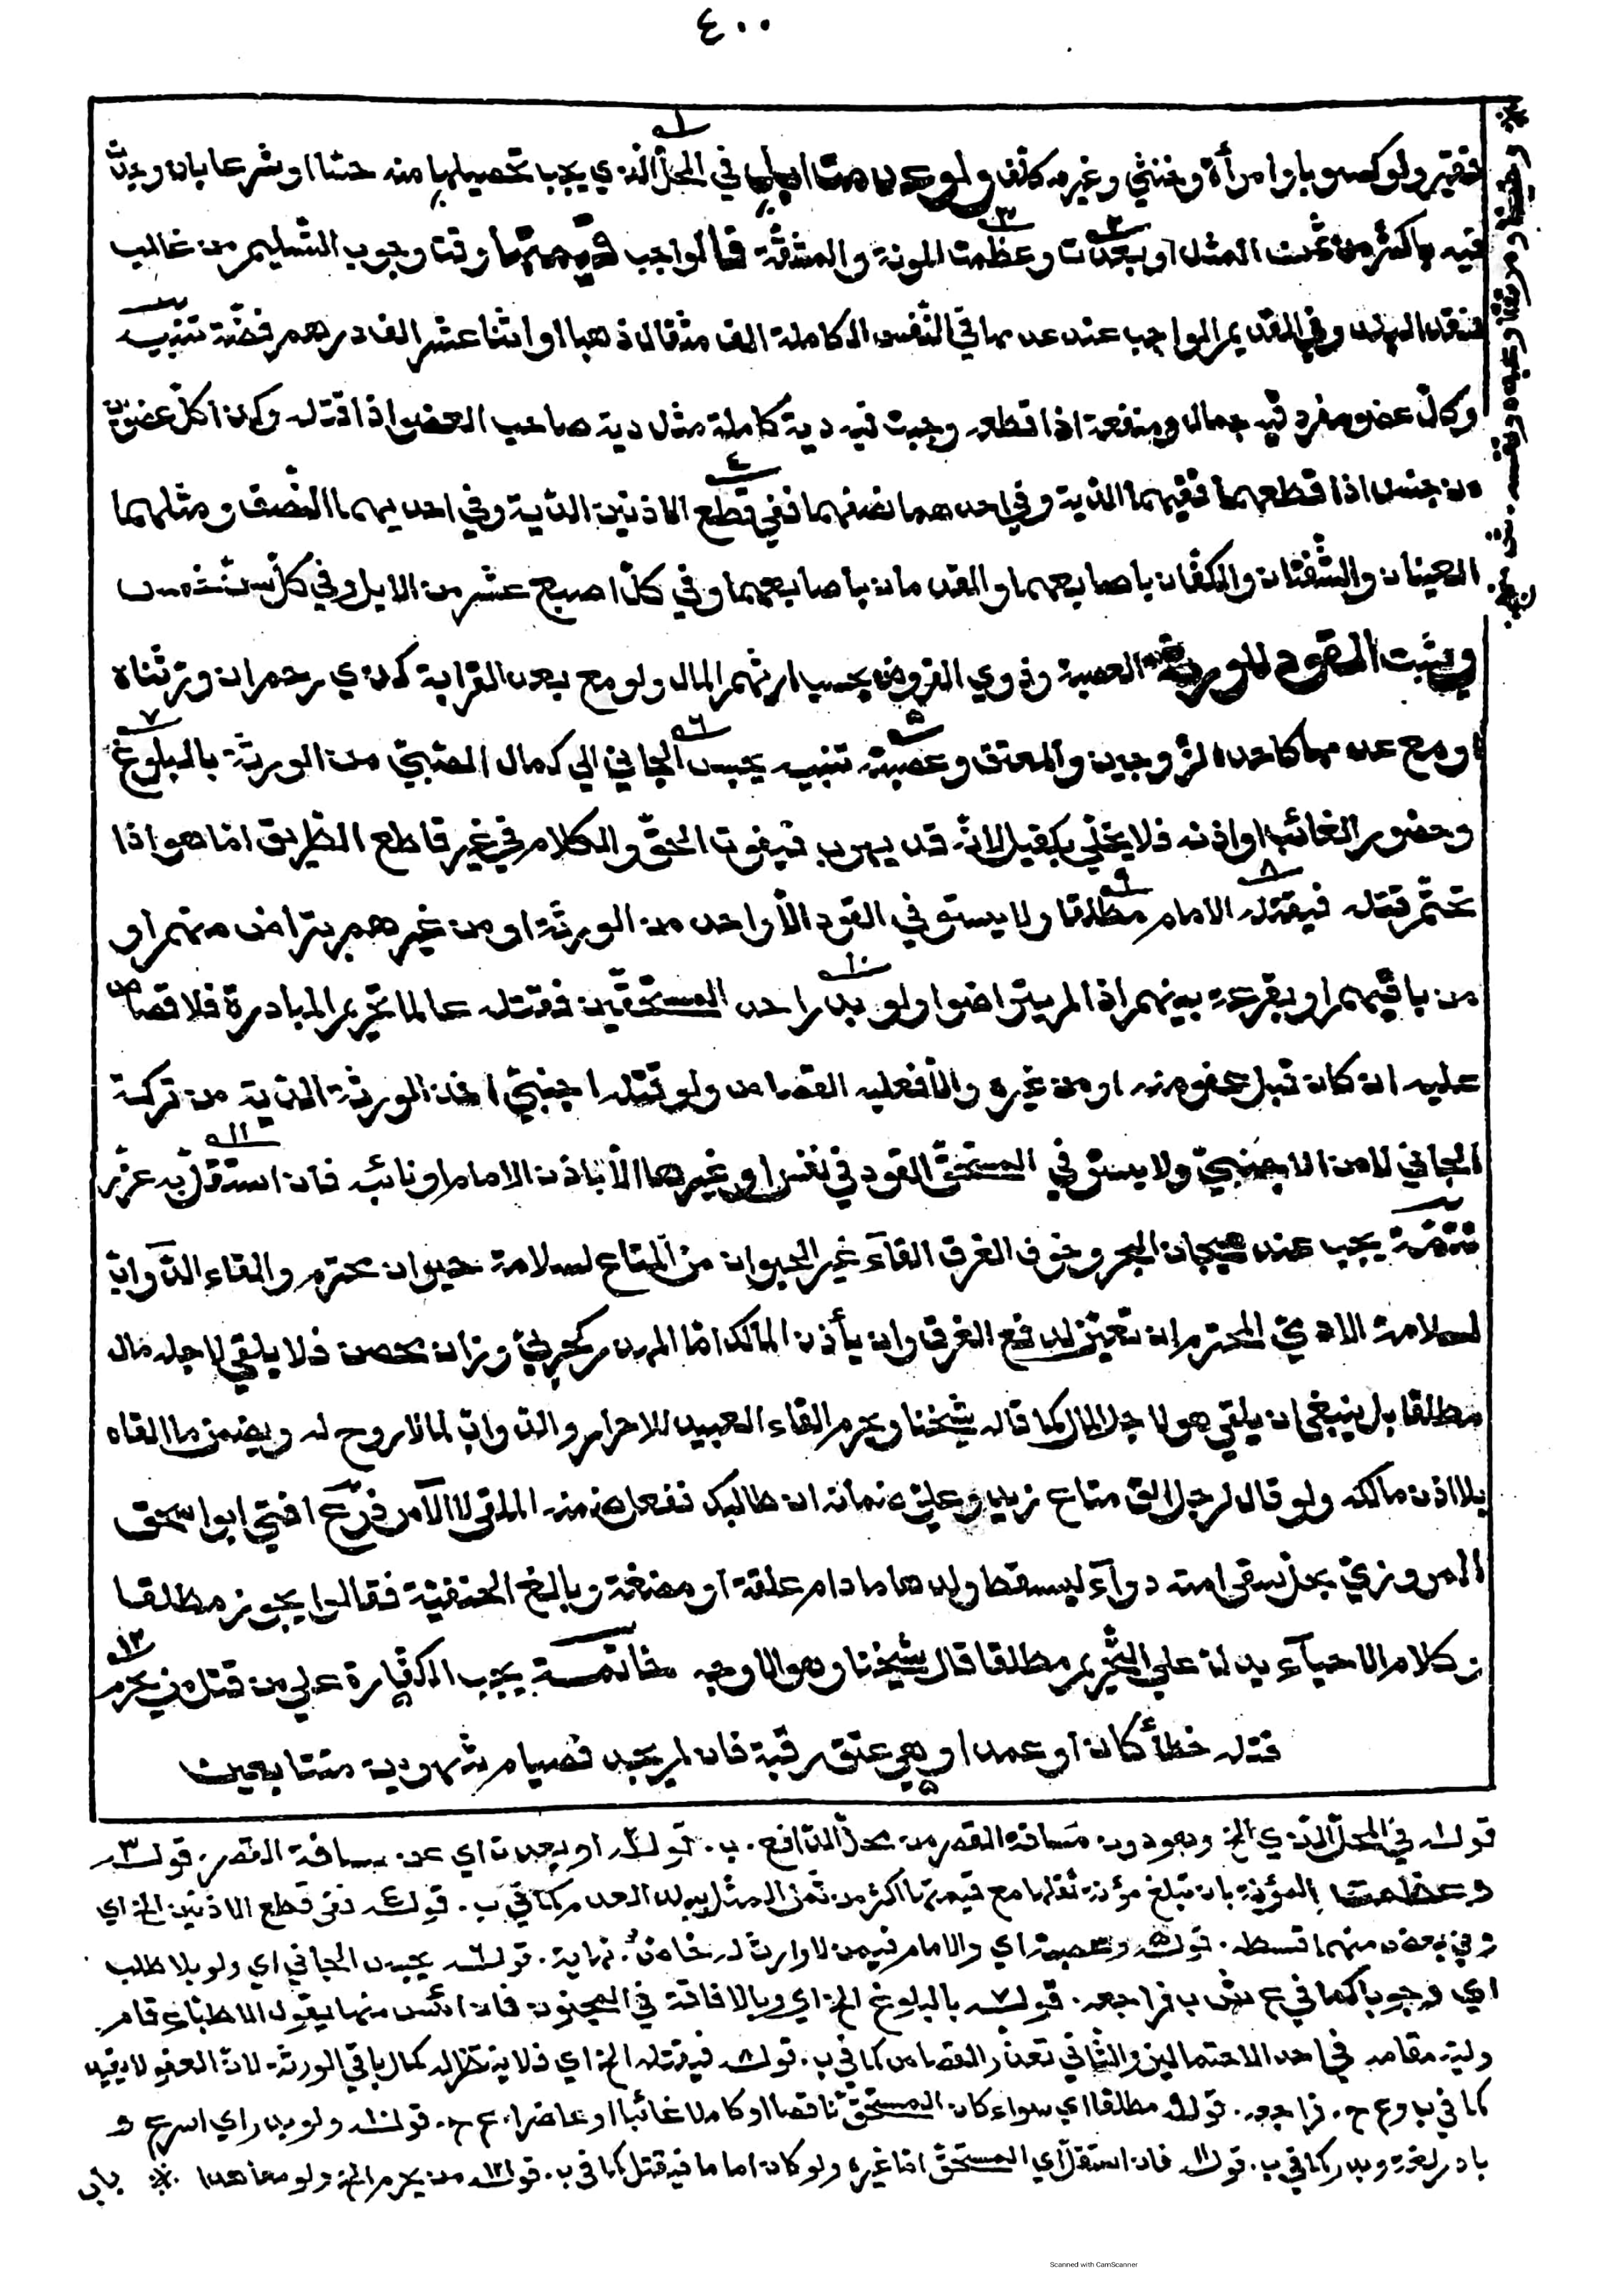 ٤٠٠
فقير ولو كسوبا وامرأة وخنثى وغير مكلف ولو عدمت ابل في المحل الذي يجب تحصيلها منه حسا او شرعا بان وجدت
فيه باكثر من ثمن المثل او بعدت وعظمت المونة والمشقة فالواجب قيمتها وقت وجوب التسليم من غالب
نقد البلد وفي القديم الواجب عند عدمها في النفس الكاملة الف مثقال ذهبا او اثنا عشر الف درهم فضة تنبيه
وكل عضو مفرد فيه جمال ومنفعة اذا قطعه وجبت فيه دية كاملة مثل دية صاحب العضو اذا قتله وكذا كل عضوين
من جنس اذا قطعهما ففيهما الدية وفي احدهما نصفها ففي قطع الاذنين الدية وفي احديهما النصف ومثلهما
العينان والشفتان والكفان باصابعهما والقدمان باصابعهما وفي كل اصبع عشر من الابل وفي كل سن خمس
ويثبت القود للورثة العصبة وذوي الفروض بحسب ارثهم المال ولو مع بعد القرابة كذي رحم ان ورثناه
او مع عدمها كاحد الزوجين والمعتق وعصبته تنبيه يحبس الجاني الى كمال الصبي من الورثة بالبلوغ
وحضور الغائب او اذنه فلا يخلى بكفيل لانه قد يهرب فيفوت الحق والكلام في غير قاطع الطريق اما هو اذا
تحتم قتله فيقتله الامام مطلقا ولا يستوفي القود الا واحد من الورثة او من غيرهم بتراض منهم او
من باقيهم او بقرعة بينهم اذا لم يتراضوا ولو بدر احد المستحقين فقتله عالما تحريم المبادرة فلا قصاص
عليه ان كان قبل عفو منه او من غيره والا فعليه القصاص ولو قتله اجنبي اخذ الورثة الدية من تركة
الجاني لا من الاجنبي ولا يستوفي المستحق القود في نفس او غيرها الا باذن الامام او نائبه فان استقل به عزر
تتمة يجب عند هيجان البحر وخوف الغرق القاء غير الحيوان من المتاع لسلامة حيوان محترم والقاء الدواب
لسلامة الادمي المحترم ان تعين لدفع الغرق وان لم يأذن المالك اما المهدر كحربي وزان محصن فلا يلقى لاجله مال
مطلقا بل ينبغي ان يلقى هو لاجل المال كما قاله شيخنا ويحرم القاء العبيد للاحرار والدواب لما لا روح له ويضمن ما القاه
بلا اذن مالكه ولو قال لرجل الق متاع زيد وعلي ضمانه ان طالبك ففعل ضمنه الملقي لا الآمر فرع افتى ابو اسحق
المروزي بحل سقي امته دواء ليسقط ولدها ما دام علقة او مضغة وبالغ الحنفية فقالوا يجوز مطلقا
وكلام الاحياء يدل على التحريم مطلقا قال شيخنا وهو الاوجه خاتمة يجب الكفارة على من قتل من يحرم
قتله خطأ كان او عمدا وهي عتق رقبة فان لم يجد فصيام شهرين متتابعين
قوله في المحل الذي الخ وهو دون مسافة القصر من محل الدافع . ب . قوله او بعدت اي عن مسافة القصر . قوله
وعظمت المؤنة بان تبلغ مؤنة نقلها مع قيمتها اكثر من ثمن المثل ببلد العدم كما في ب . قوله ففي قطع الاذنين الخ اي
وفي بعض منهما قسطه . قوله وعصبته اي والامام فيمن لا وارث له خاص . نهاية . قوله يحبس الجاني اي ولو بلا طلب
اي وجوبا كما في ع ش ب فراجعه . قوله بالبلوغ الخ اي وبالافاقة في المجنون فان ائس منها بقول الاطباء قام
وليه مقامه في احد الاحتمالين والثاني تعذر القصاص كما في ب . قوله فيقتله الخ اي فلا ينتظر له كمال باقي الورثة لان العفو لا يفيد
كما في ب وع ح . فراجعه . قوله مطلقا اي سواء كان المستحق ناقصا او كاملا غائبا او حاضرا . ع ح . قوله ولو بدر اي اسرع و
بادر لغة وبدر كما في ب . قوله فان استقل اي المستحق اما غيره ولو كان اماما فيقتل كما في ب . قوله من يحرم الخ ولو معاهدا
Scanned with CamScanner